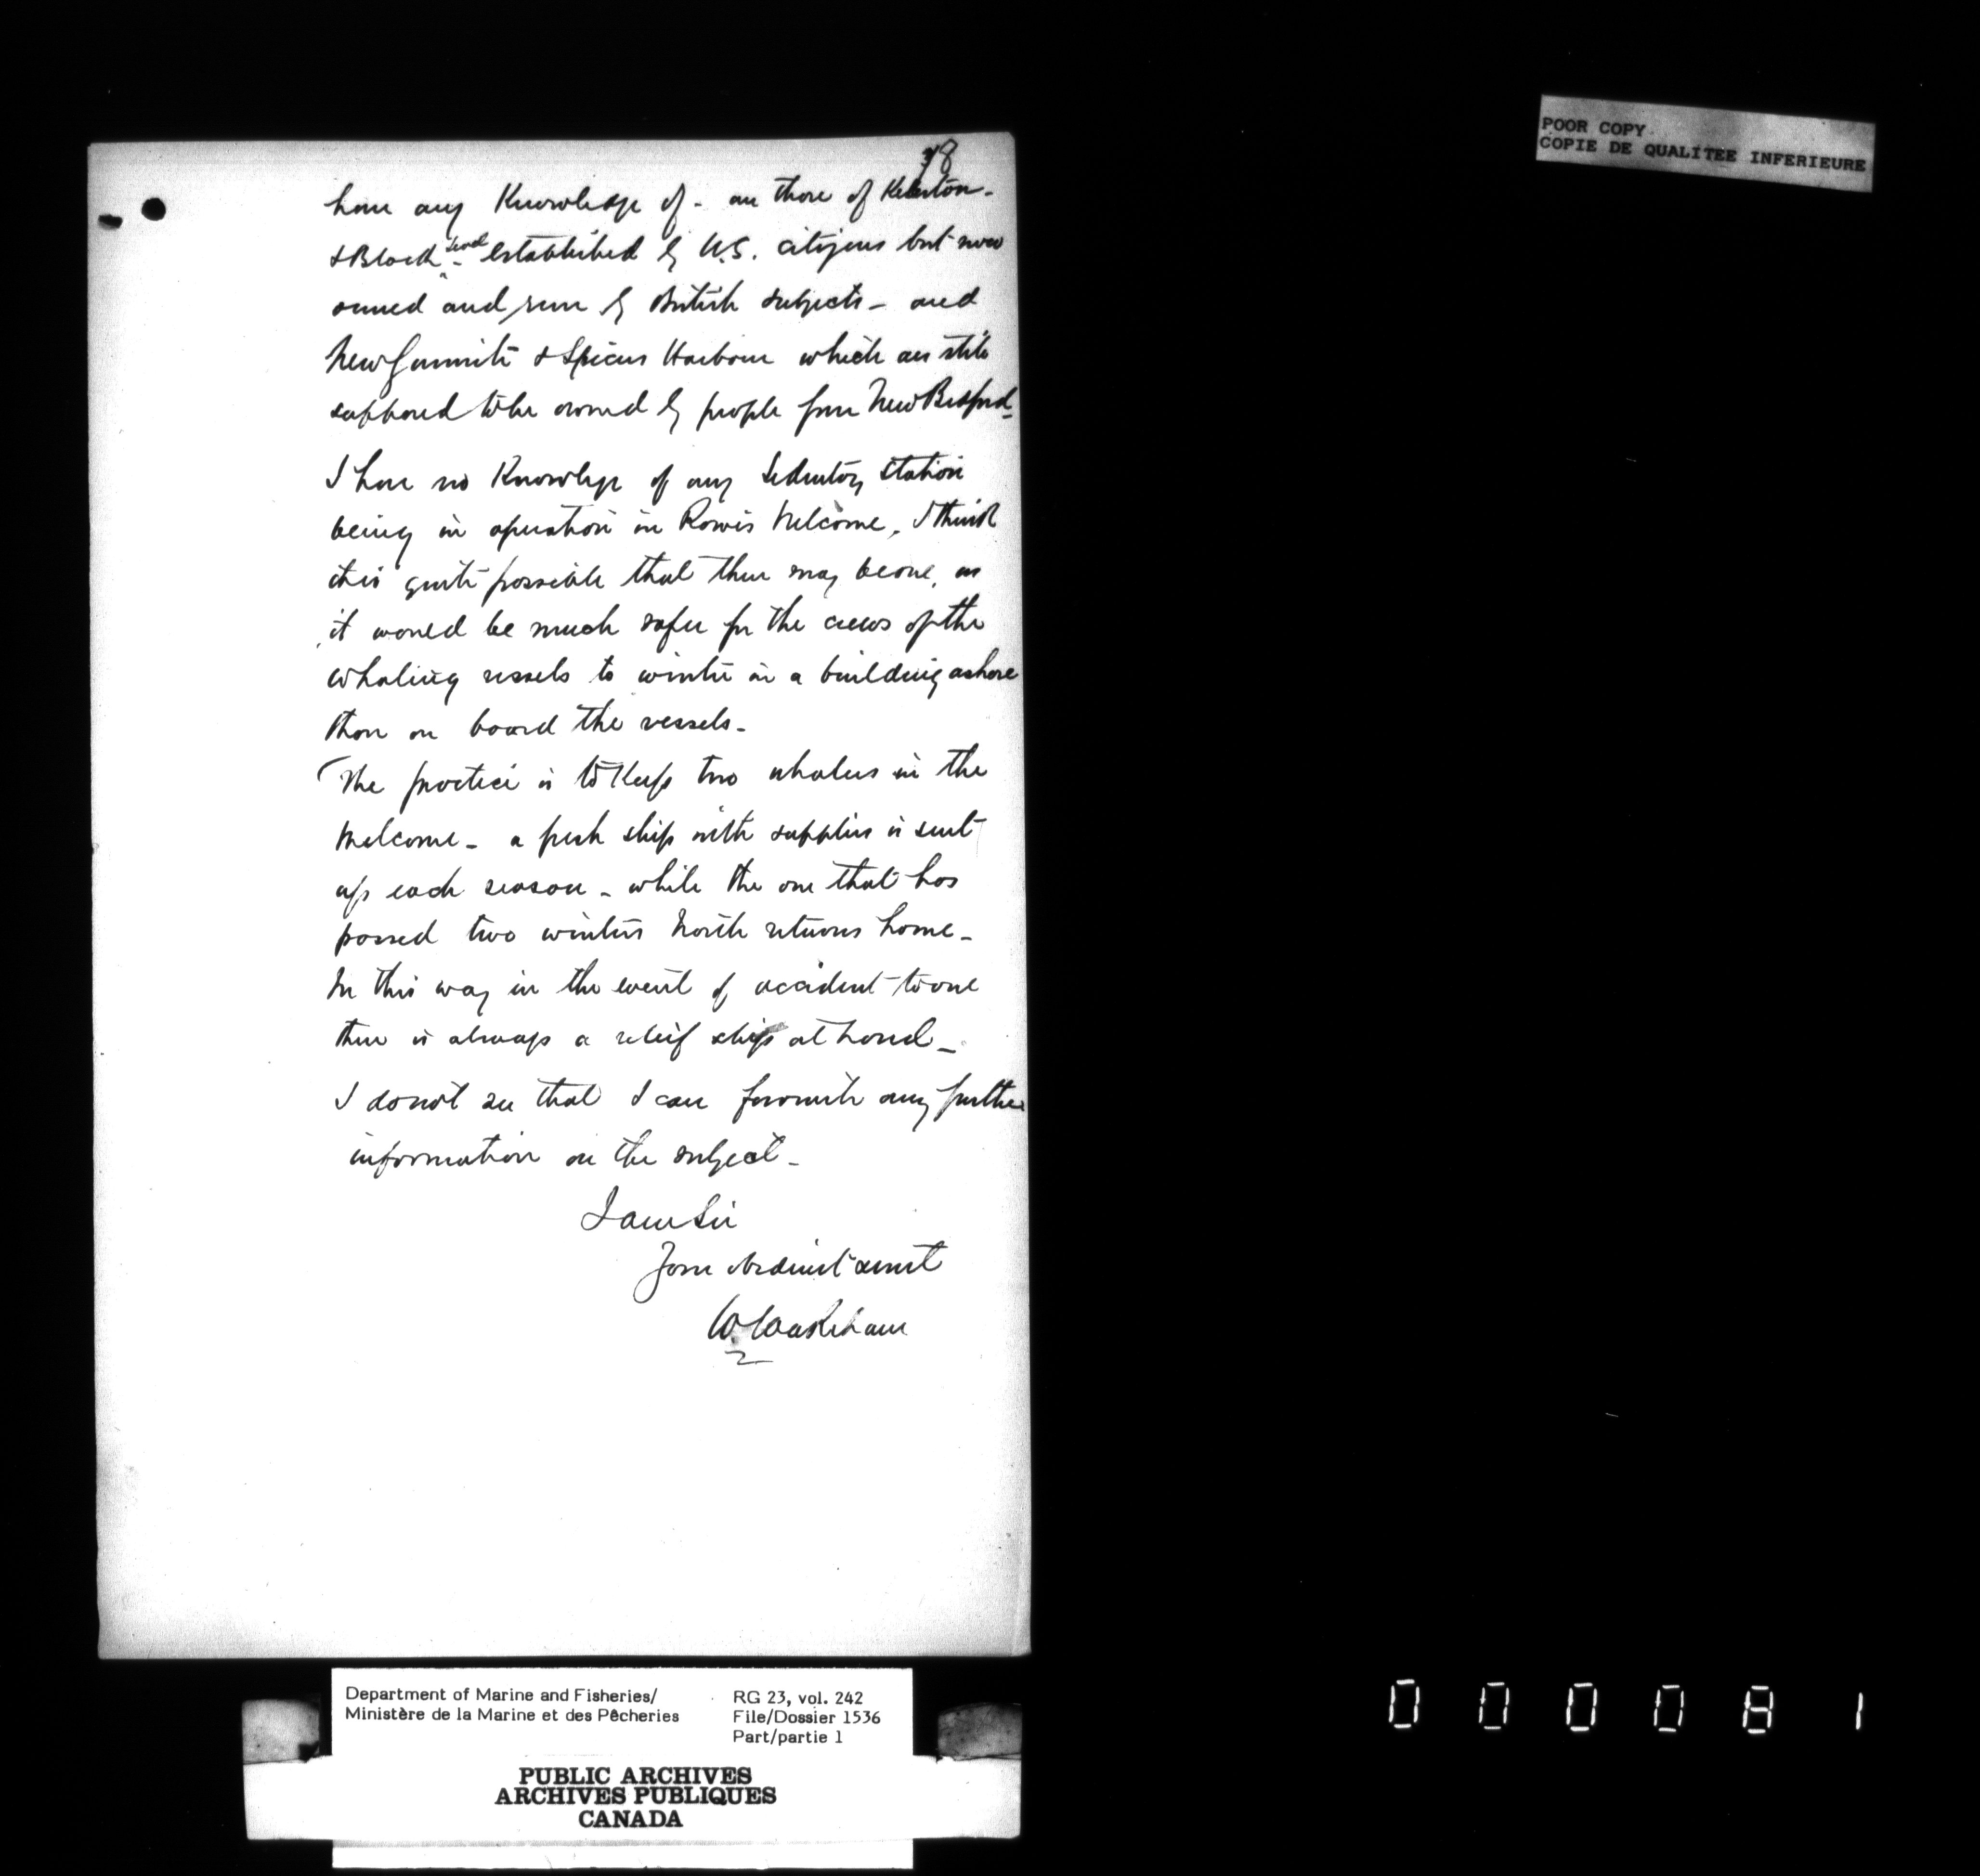 78
have any Knowledge of - are those of Kekerton -
& Black Lead - established by U.S. citizens but now
owned and run by British subjects - and
New Gummiute & Spicers Harbour which are still
supposed to be owned by people from New Bedford -
I have no Knowledge of any Sedentary Station
being in operation in Rowes Welcome, I think
it is quite possible that there may be one, as
it would be much safer for the crews of the
whaling vessels to winter in a building ashore
than on board the vessels -
The practice is to Keep two whalers in the
Welcome - a fresh ship with supplies is sent
up each season - while the one that has
passed two winters North returns home -
In this way in the event of accident to one
there is always a relief ship at hand -
I do not see that I can furnish any further
information on the subject -
I am Sir
Your obedient servt
W. Wakeham
POOR COPY
COPIE DE QUALITEE INFERIEURE
Department of Marine and Fisheries/ RG 23, vol. 242
Ministère de la Marine et des Pêcheries File/Dossier 1536
Part/partie 1
PUBLIC ARCHIVES
ARCHIVES PUBLIQUES
CANADA
000081